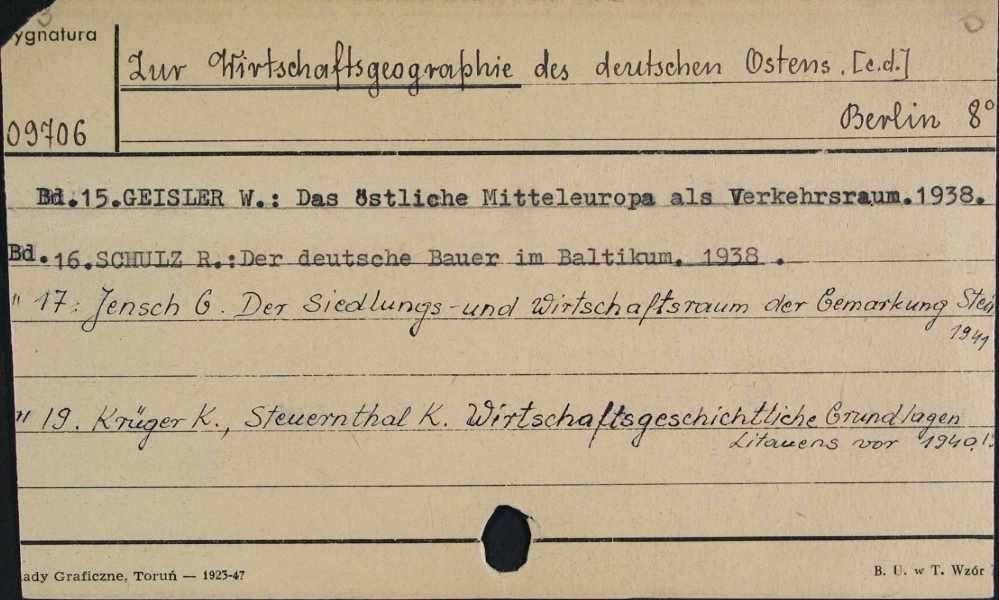 ygnatura
Zur Wirtschaftsgeographie des deutschen Ostens. [c.d.]
09706
Berlin 8°
Bd.15.GEISLER W.: Das östliche Mitteleuropa als Verkehrsraum.1938.
Bd.16.SCHULZ R.:Der deutsche Bauer im Baltikum. 1938 .
" 17: Jensch G. Der Siedlungs-und Wirtschaftsraum der Gemarkung
1941
" 19. Krüger K., Steuernthal K. Wirtschaftsgeschichtliche Grundlagen
Litauens vor 1940.
ady Graficzne, Toruń — 1923-47
B. U. w T. Wzór